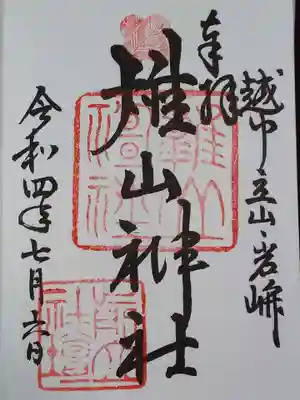 越中立山・岩峅
奉拝
雄山神社
令和四年七月六日